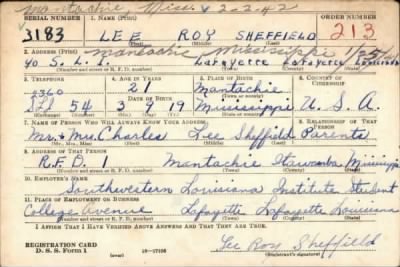 Mantachie, Miss. 2-2-42
SERIAL NUMBER 1. NAME (Print) ORDER NUMBER
3183 LEE ROY SHEFFIELD 213
(First) (Middle) (Last)
2. ADDRESS (Print) Mantachie Mississippi
% S. L. I. Lafayette Lafayette Louisiana
(Number and street or R. F. D. number) (Town) (County) (State)
3. TELEPHONE 4. AGE IN YEARS 5. PLACE OF BIRTH 6. COUNTRY OF CITIZENSHIP
2360 21 Mantachie
DATE OF BIRTH (Town or county)
54 3 19 Mississippi U. S. A.
(Exchange) (Number) (Mo.) (Day) (Yr.) (State or country)
7. NAME OF PERSON WHO WILL ALWAYS KNOW YOUR ADDRESS 8. RELATIONSHIP OF THAT PERSON
Mr. & Mrs. Charles Lee Sheffield Parents
(Mr., Mrs., Miss) (First) (Middle) (Last)
9. ADDRESS OF THAT PERSON
R.F.D. 1 Mantachie Itawamba Mississippi
(Number and street or R. F. D. number) (Town) (County) (State)
10. EMPLOYER'S NAME
Southwestern Louisiana Institute Student
11. PLACE OF EMPLOYMENT OR BUSINESS
College Avenue Lafayette Lafayette Louisiana
(Number and street or R. F. D. number) (Town) (County) (State)
I AFFIRM THAT I HAVE VERIFIED ABOVE ANSWERS AND THAT THEY ARE TRUE.
REGISTRATION CARD
D. S. S. Form 1 (over) 16-17105 Lee Roy Sheffield
(Registrant's signature)